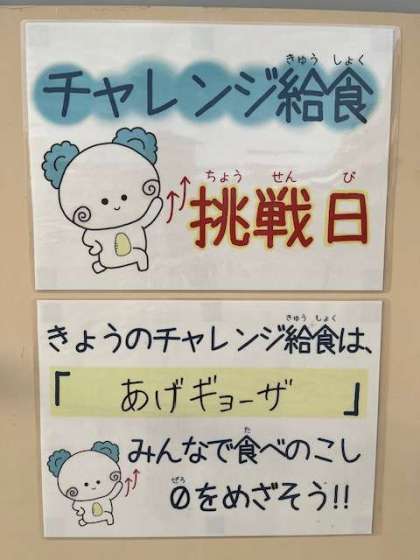 きゅう しょく
チャレンジ給食
ちょう せん び
挑戦日
きゅう しょく
きょうのチャレンジ給食は、
「 あげギョーザ 」
た
みんなで食べのこし
ぜろ
0をめざそう!!